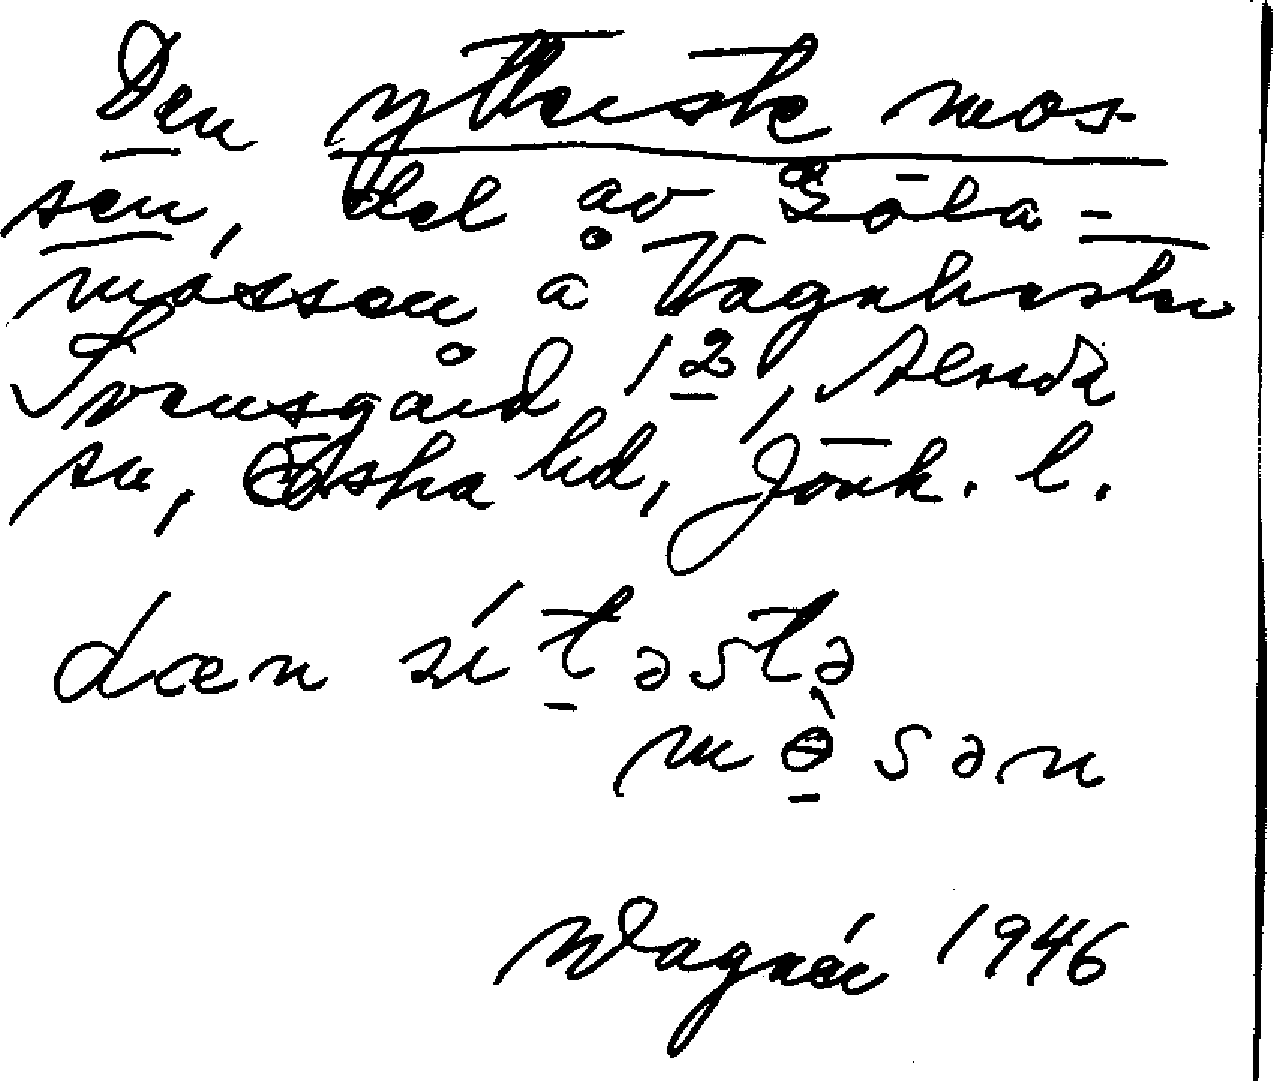 Den ytterste mos-
sen, del av Göla-
mossen å Vagnhester
Svensgård 1 2, Almundr
sn, Ölska hd, Jönk. l.
dæn ýtəstə
mòsən
Wagnér 1946